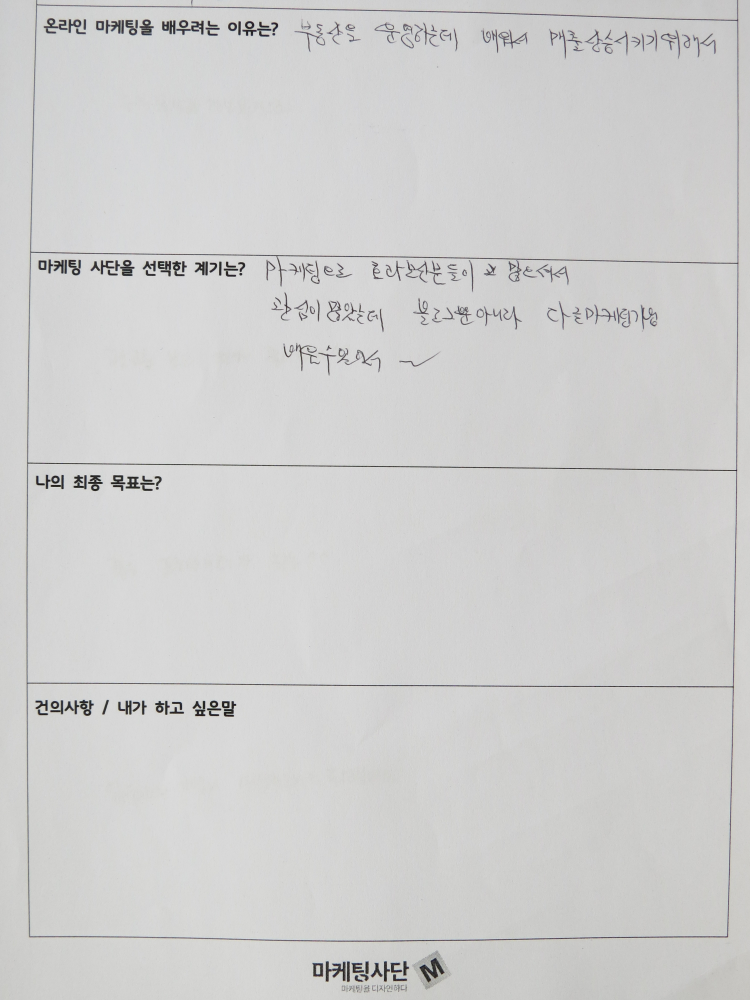 온라인 마케팅을 배우려는 이유는? 부동산을 운영하는데 배워서 매출상승시키기위해서
마케팅 사단을 선택한 계기는? 마케팅으로 분들이 많으셔서
관심이 많았는데 블로그뿐아니라 다른마케팅기법
배울수있어서 ~
나의 최종 목표는?
건의사항 / 내가 하고 싶은말
마케팅사단 M
마케팅을 디자인하다